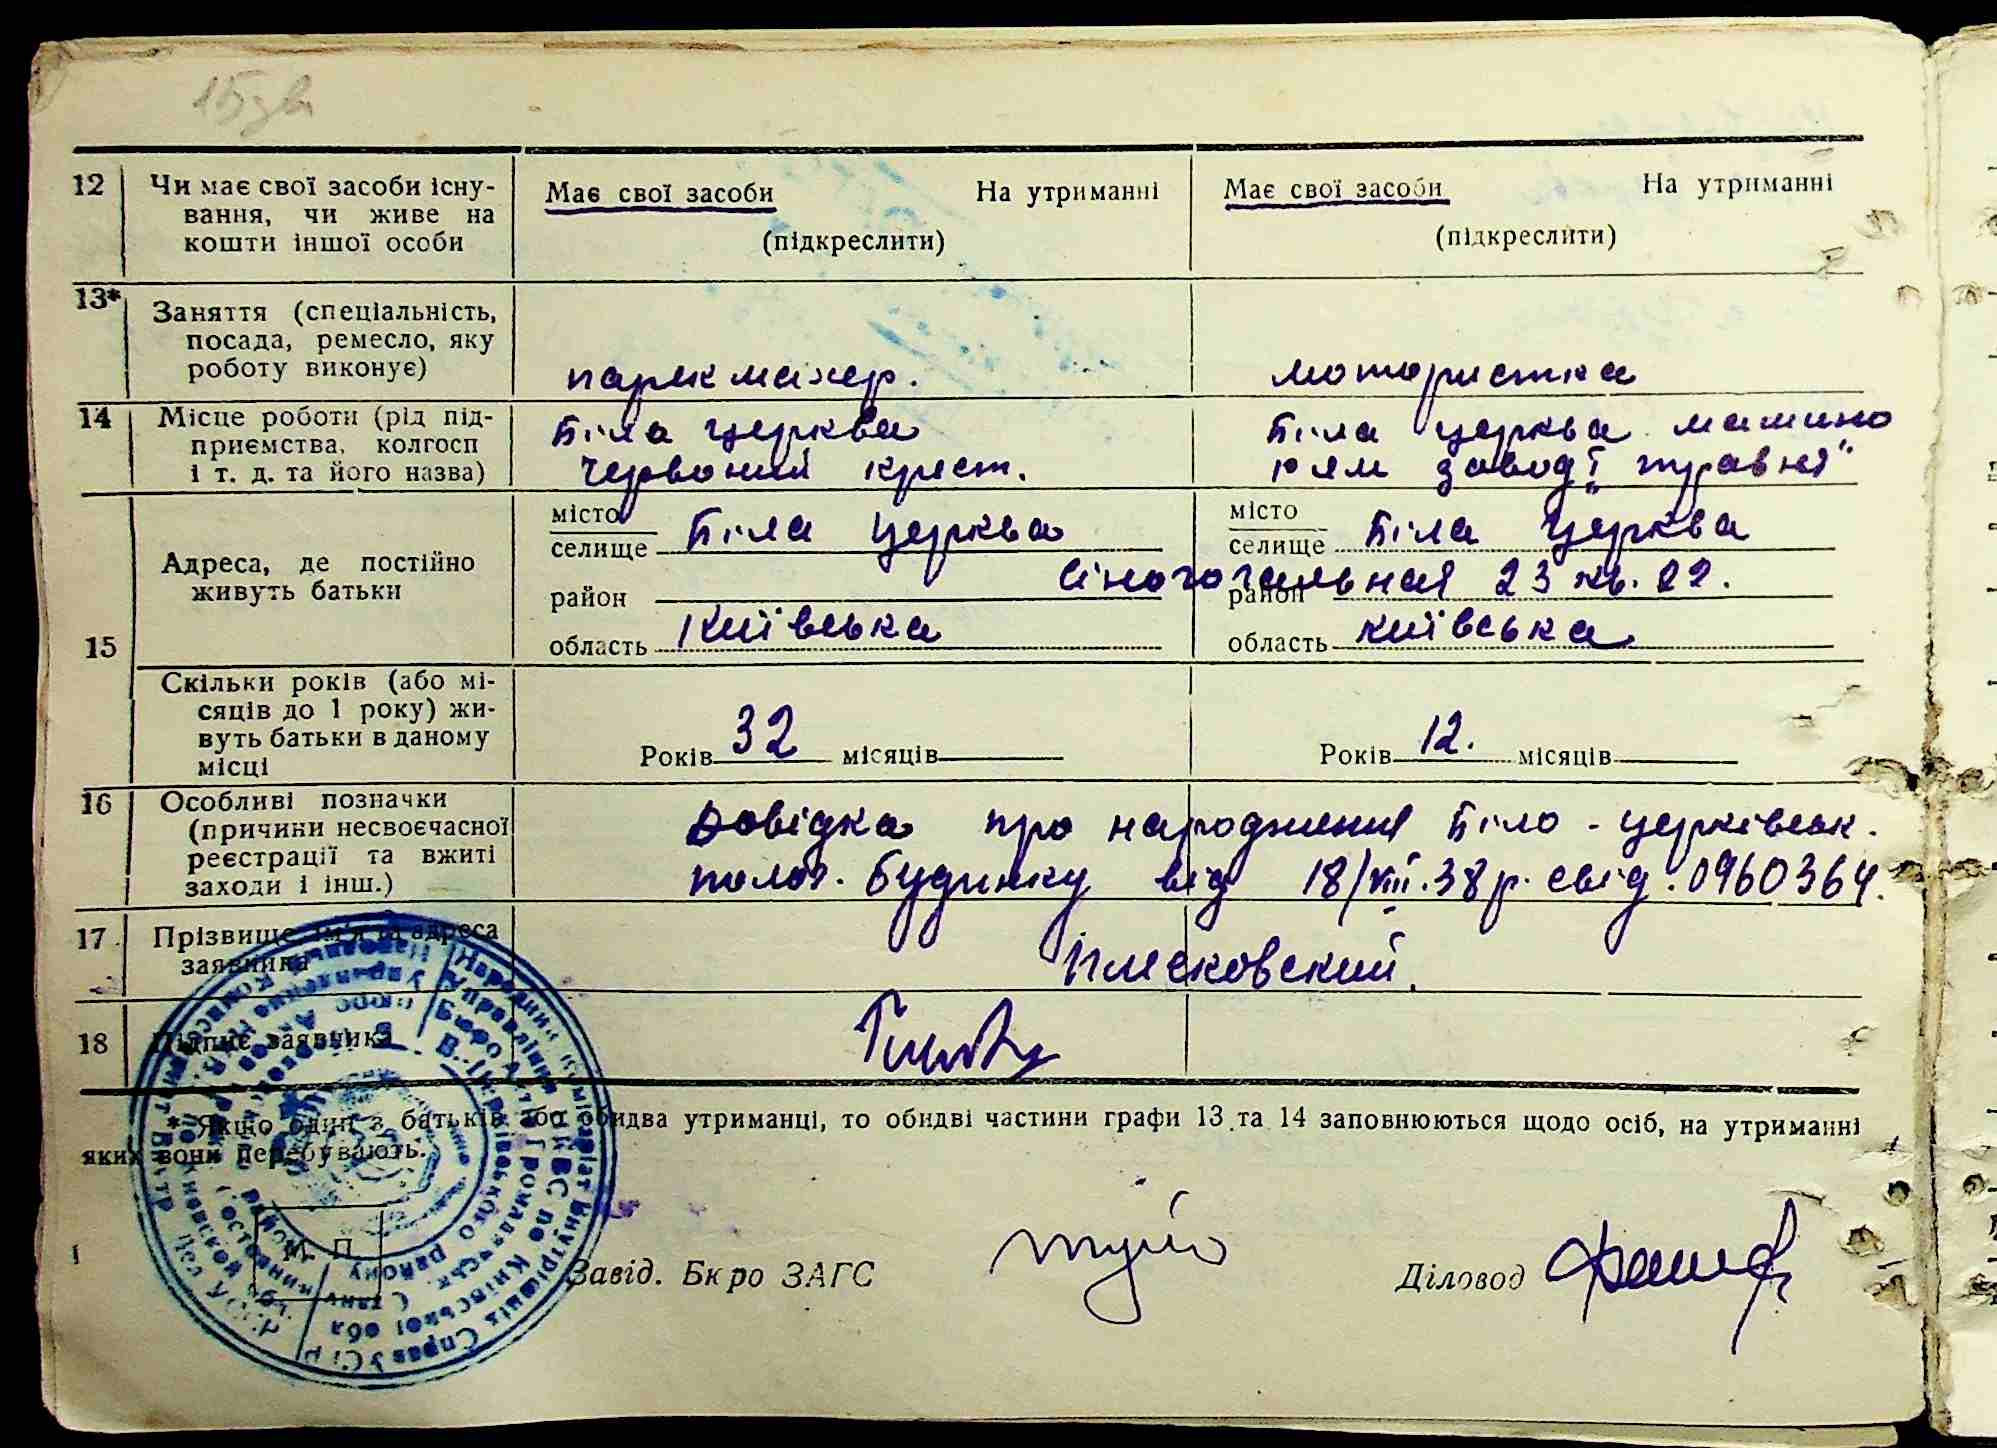 12 Чи має свої засоби існу-
вання, чи живе на
кошти іншої особи
Має свої засоби На утриманні
(підкреслити)
Має свої засоби На утриманні
(підкреслити)
13* Заняття (спеціальність,
посада, ремесло, яку
роботу виконує)
парикмахер.
мотористка
14 Місце роботи (рід під-
приємства, колгосп
і т. д. та його назва)
Біла церква
Червоний крест.
Біла церква машино
завод „1 травня"
15 Адреса, де постійно
живуть батьки
місто
селище Біла церква
район
область Київська
місто
селище Біла церква
Сінагогальная 23 кв. 22.
район
область Київська
Скільки років (або мі-
сяців до 1 року) жи-
вуть батьки в даному
місці
Років 32 місяців
Років 12. місяців
16 Особливі позначки
(причини несвоєчасної
реєстрації та вжиті
заходи і інш.)
Довідка про народження Біло-церківськ.
полог. будинку від 18/VIII.38р. свід. 0960364.
17 Прізвище, ім'я та адреса
заявника
Плисковский.
18 Підпис заявника
* Якщо один з батьків або обидва утриманці, то обидві частини графи 13 та 14 заповнюються щодо осіб, на утриманні
яких вони перебувають.
М. П.
Завід. Бюро ЗАГС
Діловод